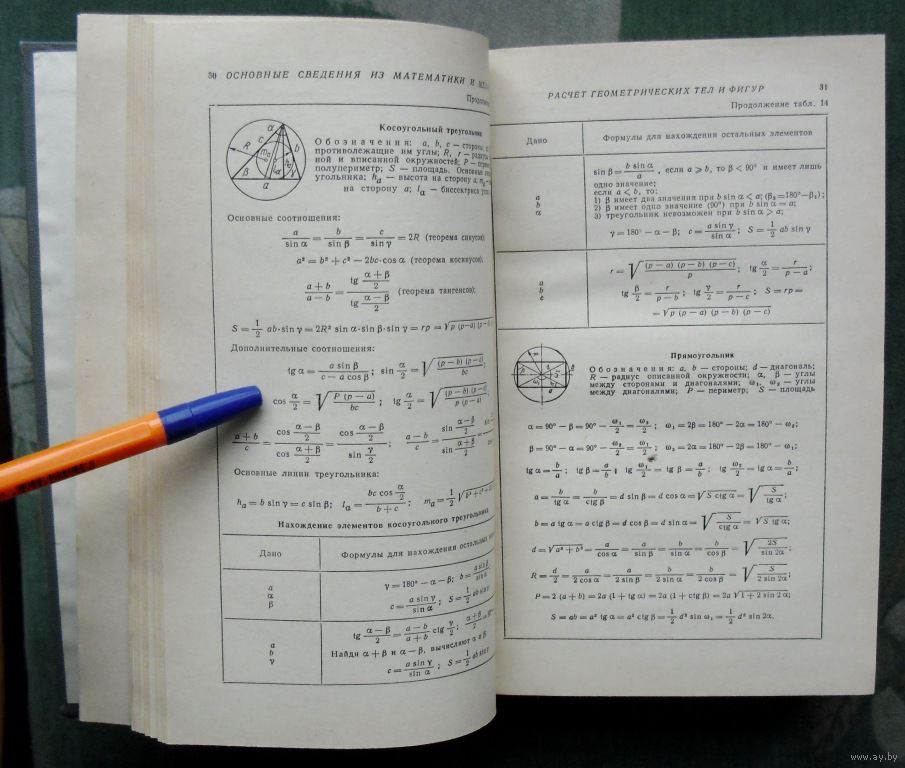 30 ОСНОВНЫЕ СВЕДЕНИЯ ИЗ МАТЕМАТИКИ И
Косоугольный треугольник
Обозначения: a, b, c —
противолежащие им углы; R, r —
ной и вписанной окружностей; P —
полупериметр; S — площадь. Основные
угольника; hₐ — высота на сторону a; mₐ
на сторону a; lₐ — биссектриса
Основные соотношения:
a/sin α = b/sin β = c/sin γ = 2R (теорема синусов);
a² = b² + c² − 2bc·cos α (теорема косинусов);
(a + b)/(a − b) = tg((α + β)/2)/tg((α − β)/2) (теорема тангенсов);
S = 1/2 ab·sin γ = 2R² sin α·sin β·sin γ = rp = √p (p−a) (p−b)
Дополнительные соотношения:
tg α = a sin β/(c − a cos β); sin α/2 = √((p − b) (p − c)/bc);
cos α/2 = √(P (p − a)/bc); tg α/2 = √((p − b) (p − c)/p (p − a));
(a + b)/c = cos((α − β)/2)/cos((α + β)/2) = cos((α − β)/2)/sin(γ/2); (a − b)/c = sin((α − β)/2)/sin((α + β)/2) =
Основные линии треугольника:
hₐ = b sin γ = c sin β; lₐ = bc cos(α/2)/(b + c); mₐ = 1/2
Нахождение элементов косоугольного треугольника
Дано Формулы для нахождения остальных
a
α
β
γ = 180° − α − β; b = a sin β/sin α
c = a sin γ/sin α; S = 1/2 ab sin γ
a
b
γ
tg (α − β)/2 = (a − b)/(a + b) ctg γ/2; (α + β)/2 =
Найдя α + β и α − β, вычисляют α и β
c = a sin γ/sin α; S = 1/2 ab sin γ
РАСЧЕТ ГЕОМЕТРИЧЕСКИХ ТЕЛ И ФИГУР 31
Продолжение табл. 14
Дано Формулы для нахождения остальных элементов
a
b
α
sin β = b sin α/a, если a ⩾ b, то β < 90° и имеет лишь
одно значение;
если a < b, то:
1) β имеет два значения при b sin α < a; (β₂=180°−β₁);
2) β имеет одно значение (90°) при b sin α = a;
3) треугольник невозможен при b sin α > a;
γ = 180° − α − β; c = a sin γ/sin α; S = 1/2 ab sin γ
a
b
c
r = √((p − a) (p − b) (p − c)/p); tg α/2 = r/(p − a);
tg β/2 = r/(p − b); tg γ/2 = r/(p − c); S = rp =
= √p (p − a) (p − b) (p − c)
Прямоугольник
Обозначения: a, b — стороны; d — диагональ;
R — радиус описанной окружности; α, β — углы
между сторонами и диагоналями; ω₁, ω₂ — углы
между диагоналями; P — периметр; S — площадь
α = 90° − β = 90° − ω₁/2 = ω₂/2; ω₁ = 2β = 180° − 2α = 180° − ω₂;
β = 90° − α = 90° − ω₂/2 = ω₁/2; ω₂ = 2α = 180° − 2β = 180° − ω₁;
tg α = b/a; tg β = a/b; tg ω₁/2 = tg β = a/b; tg ω₂/2 = tg α = b/a;
a = b/tg α = b/ctg β = d sin β = d cos α = √S ctg α = √(S/tg α);
b = a tg α = a ctg β = d cos β = d sin α = √(S/ctg α) = √S tg α;
d = √a² + b² = a/cos α = a/sin β = b/sin α = b/cos β = √(2S/sin 2α);
R = d/2 = a/2 cos α = a/2 sin β = b/2 sin α = b/2 cos β = √(S/2 sin 2α);
P = 2 (a + b) = 2a (1 + tg α) = 2a (1 + ctg β) = 2d √1 + sin 2α;
S = ab = a² tg α = a² ctg β = 1/2 d² sin ω₁ = 1/2 d² sin 2α.
www.ay.by